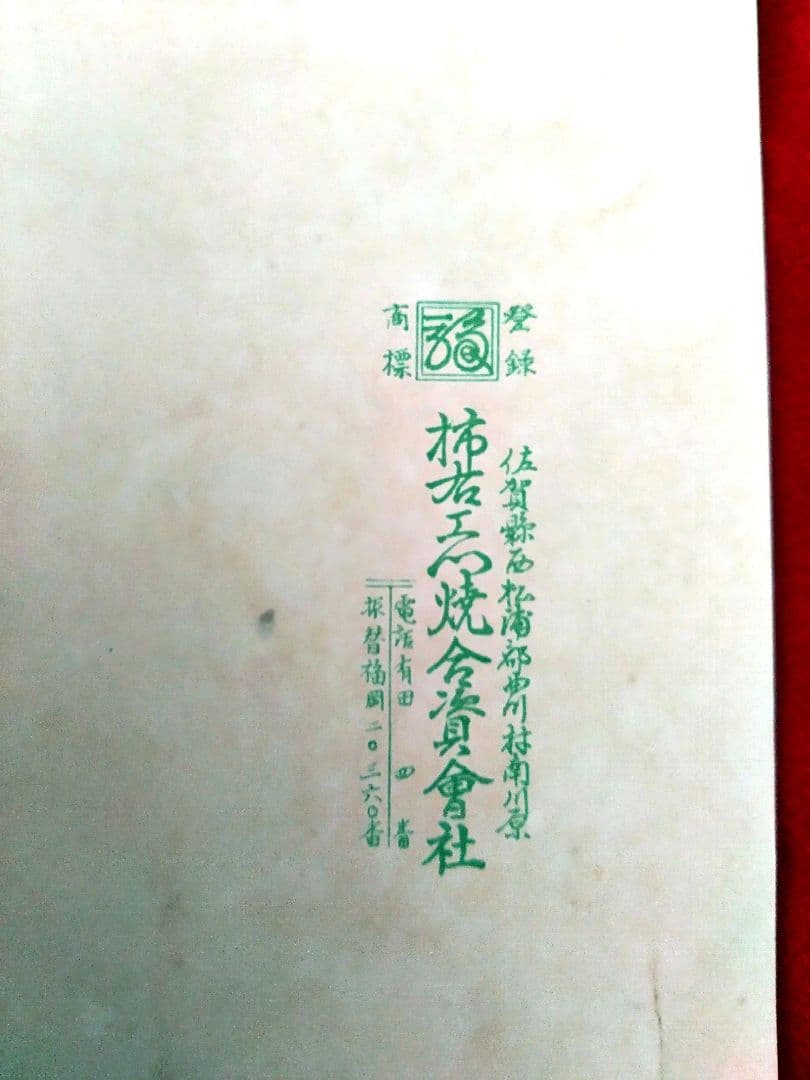 登録
福
商標
佐賀縣西松浦郡曲川村南川原
柿右エ門焼合資會社
電話有田 四番
振替福岡二〇三六〇番